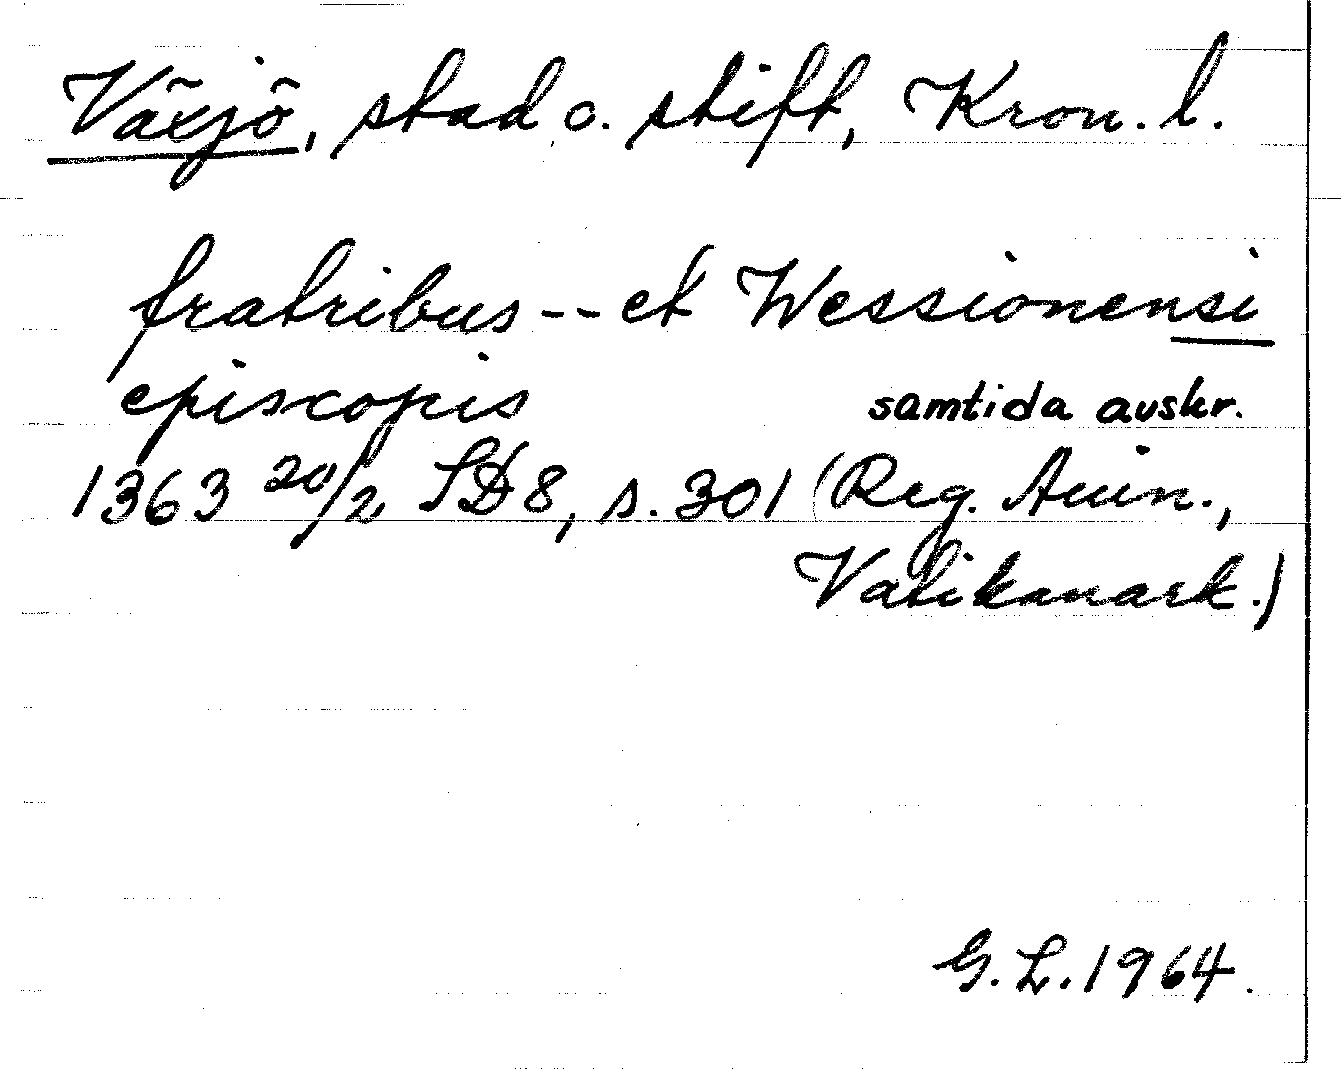 Växjö, stad o. stift, Kron. l.
fratribus -- et Wessionensi
episcopis samtida avskr.
1363 20/2 SD 8, s. 301 (Reg. Avin.,
Vatikanark.)
G. L. 1964.